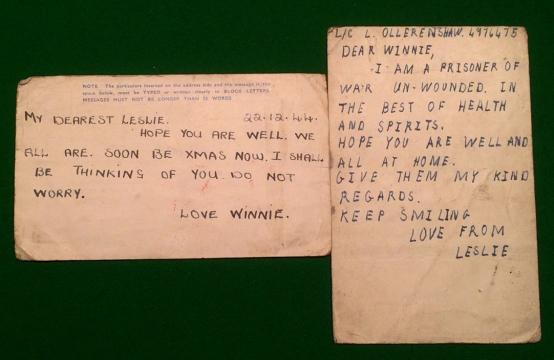 NOTE The particulars inserted on the address side and the message in the
space below, must be TYPED or written clearly in BLOCK LETTERS.
MESSAGES MUST NOT BE LONGER THAN 25 WORDS
MY DEAREST LESLIE. 22-12-44.
HOPE YOU ARE WELL. WE
ALL ARE. SOON BE XMAS NOW. I SHALL
BE THINKING OF YOU. DO NOT
WORRY.
LOVE WINNIE.
L/C L. OLLERENSHAW. 4976475
DEAR WINNIE,
I AM A PRISONER OF
WAR UN-WOUNDED. IN
THE BEST OF HEALTH
AND SPIRITS.
HOPE YOU ARE WELL AND
ALL AT HOME.
GIVE THEM MY KIND
REGARDS.
KEEP SMILING
LOVE FROM
LESLIE